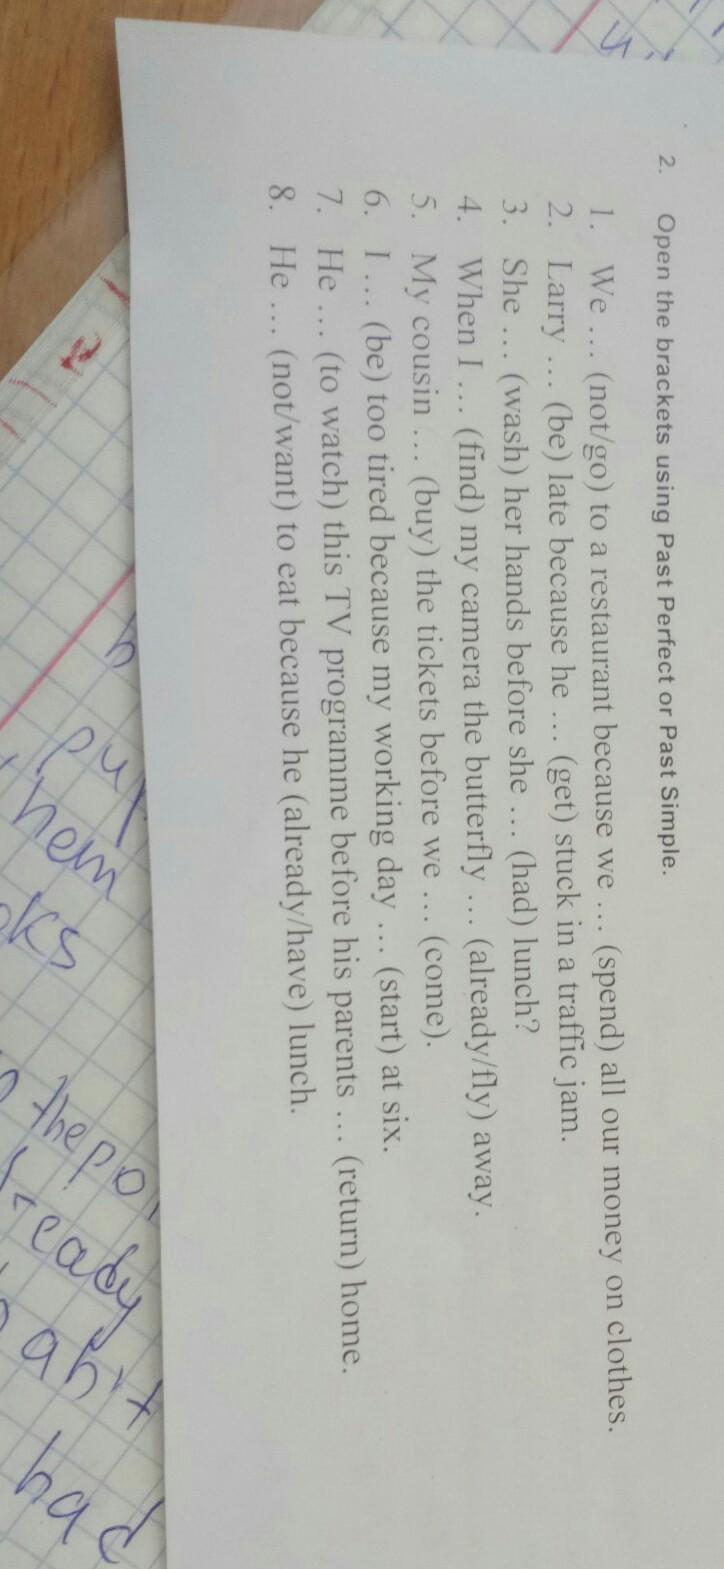 2. Open the brackets using Past Perfect or Past Simple.
1. We ... (not/go) to a restaurant because we ... (spend) all our money on clothes.
2. Larry ... (be) late because he ... (get) stuck in a traffic jam.
3. She ... (wash) her hands before she ... (had) lunch?
4. When I ... (find) my camera the butterfly ... (already/fly) away.
5. My cousin ... (buy) the tickets before we ... (come).
6. I ... (be) too tired because my working day ... (start) at six.
7. He ... (to watch) this TV programme before his parents ... (return) home.
8. He ... (not/want) to eat because he (already/have) lunch.
had